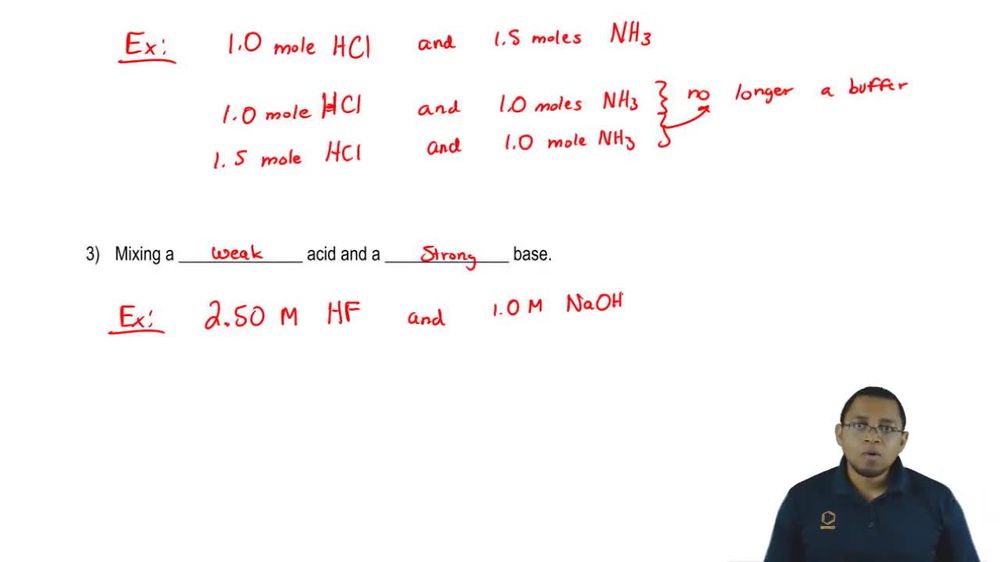 Ex: 1.0 mole HCl and 1.5 moles NH3
1.0 mole HCl and 1.0 moles NH3 } no longer a buffer
1.5 mole HCl and 1.0 mole NH3 }
3) Mixing a weak acid and a Strong base.
Ex: 2.50 M HF and 1.0 M NaOH